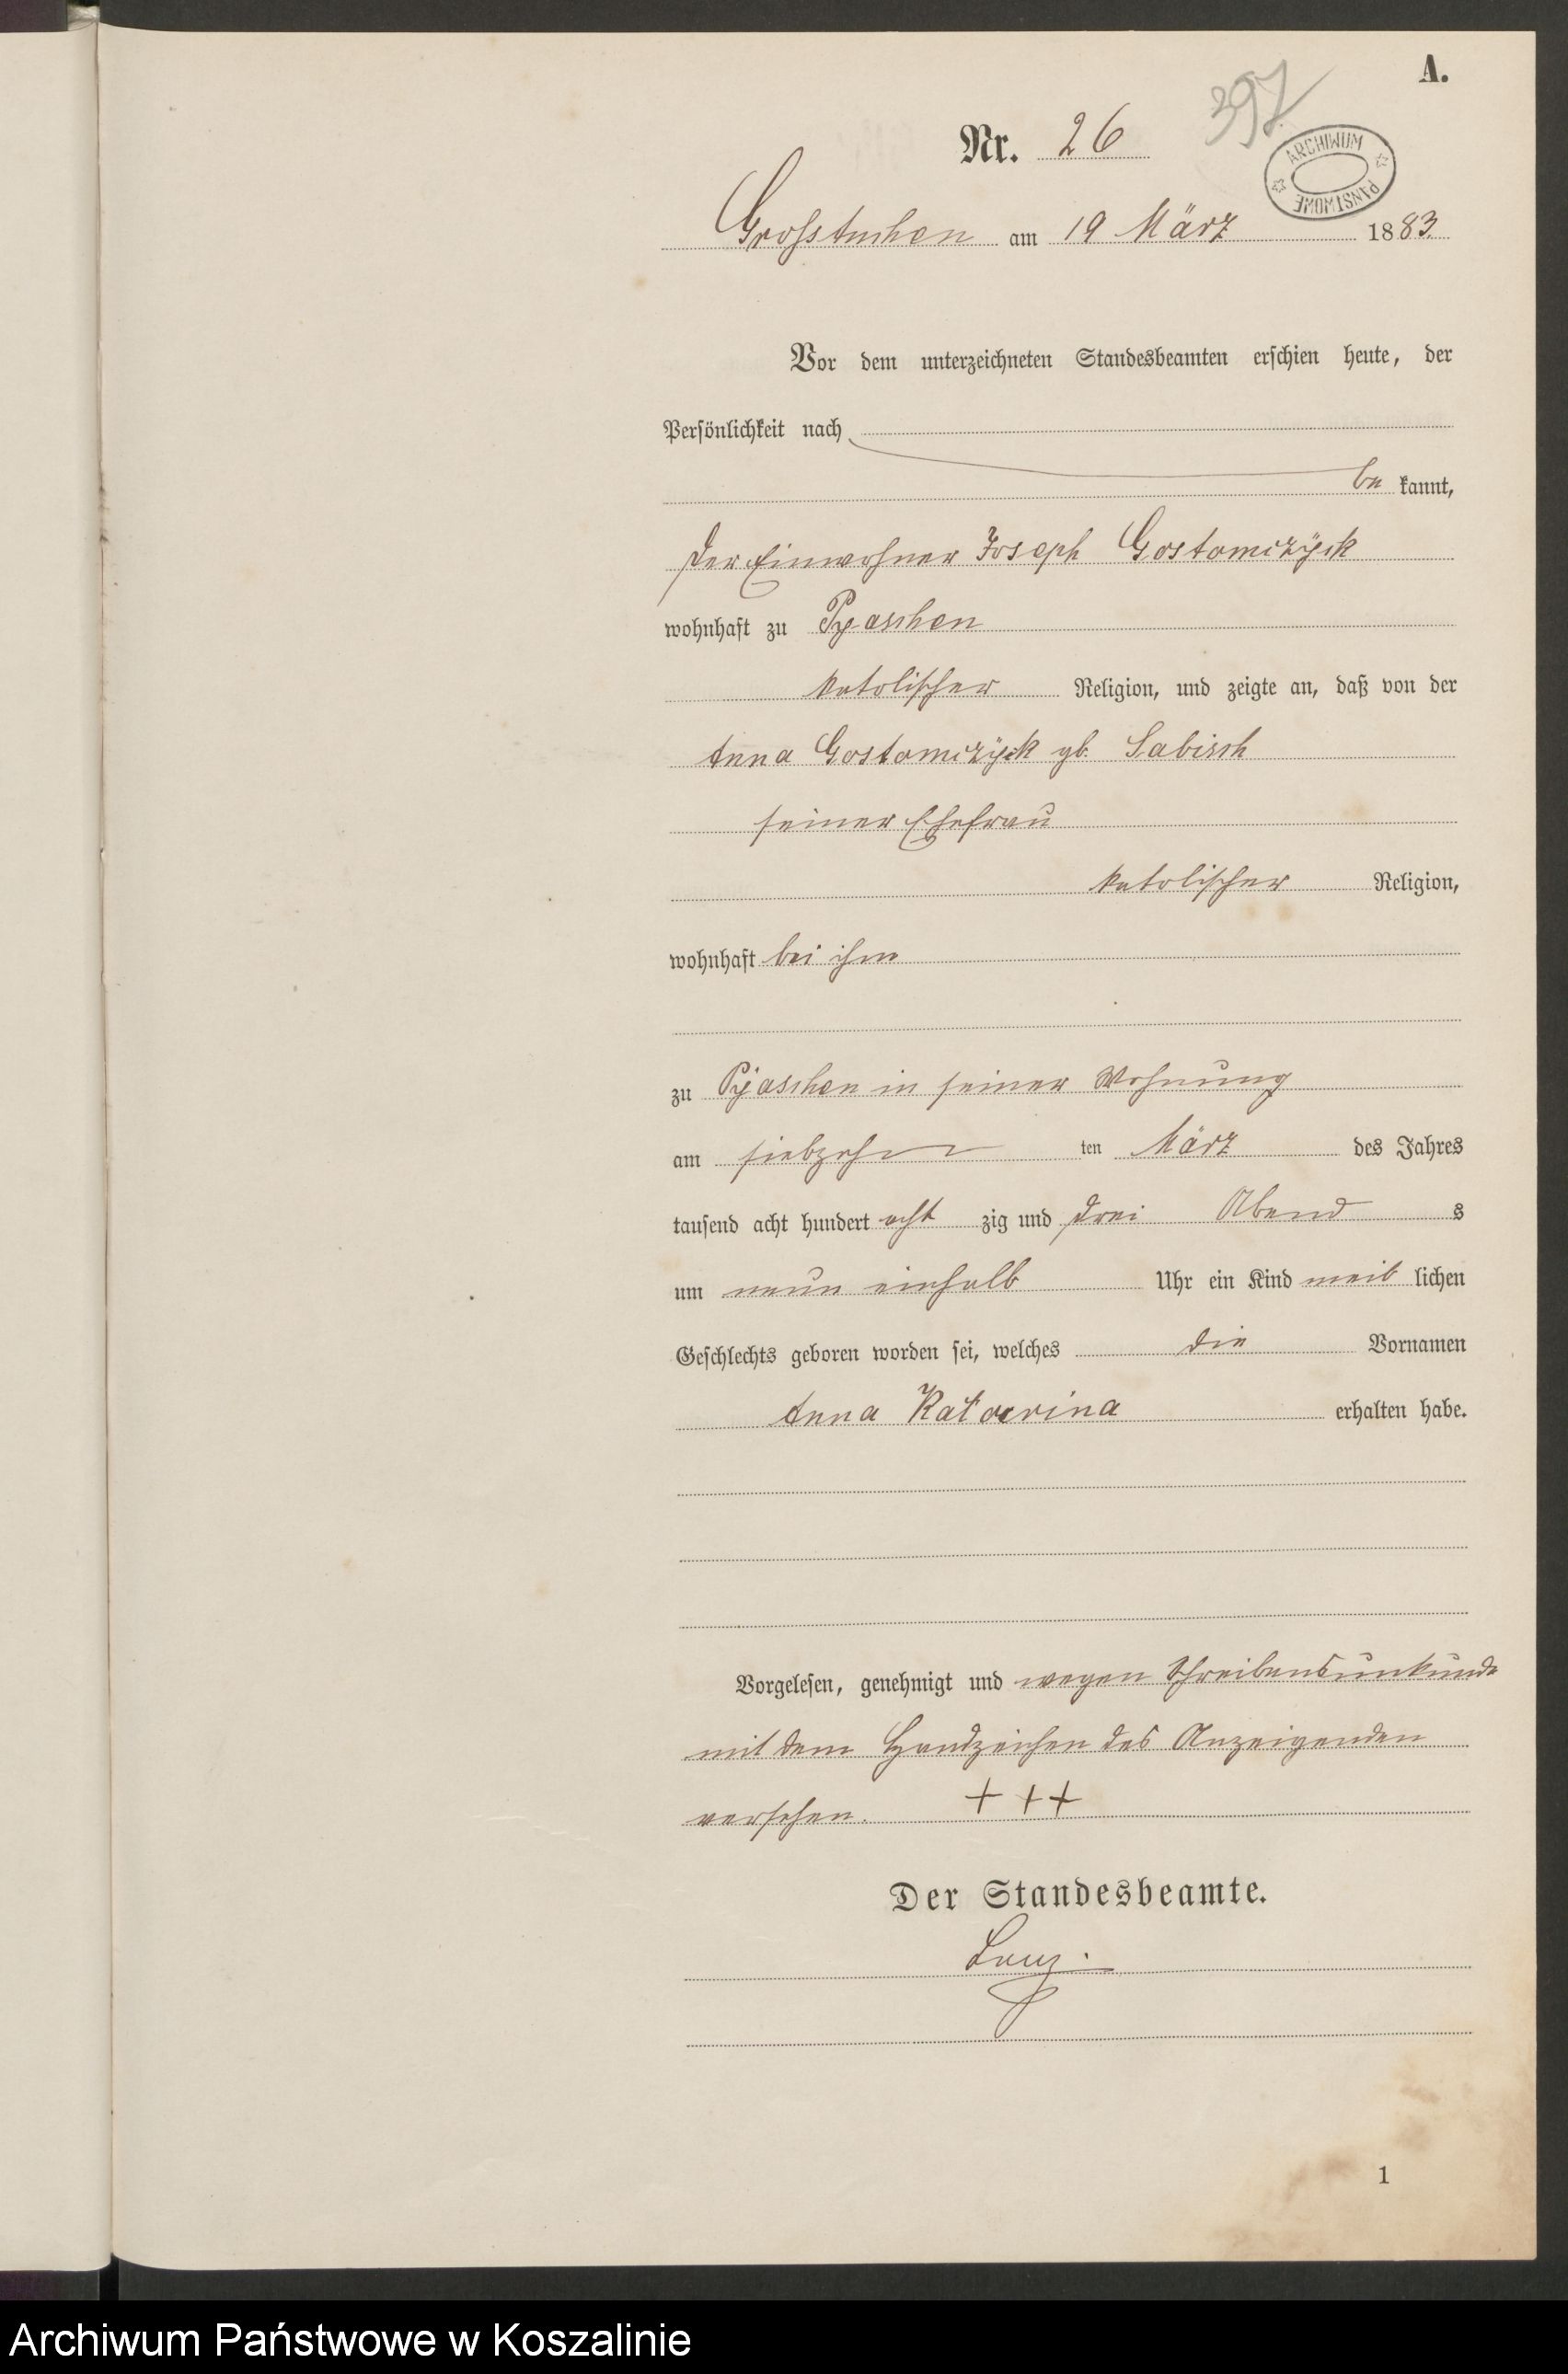 A.
397
Nr. 26
ARCHIWUM PAŃSTWOWE
Grosstuchen am 19 März 1883.
Vor dem unterzeichneten Standesbeamten erschien heute, der
Persönlichkeit nach
be kannt,
der Einwohner Joseph Gostomczÿck
wohnhaft zu Pyaschen
katolischer Religion, und zeigte an, daß von der
Anna Gostomczÿck gb. Labisch
seiner Ehefrau
katolischer Religion,
wohnhaft bei ihm
zu Pyaschen in seiner Wohnung
am siebzehn ten März des Jahres
tausend acht hundert acht zig und drei Abend s
um neun einhalb Uhr ein Kind weib lichen
Geschlechts geboren worden sei, welches die Vornamen
Anna Katarina erhalten habe.
Vorgelesen, genehmigt und wegen Schreibensunkunde
mit dem Handzeichen des Anzeigenden
versehen. + + +
Der Standesbeamte.
1
Archiwum Państwowe w Koszalinie